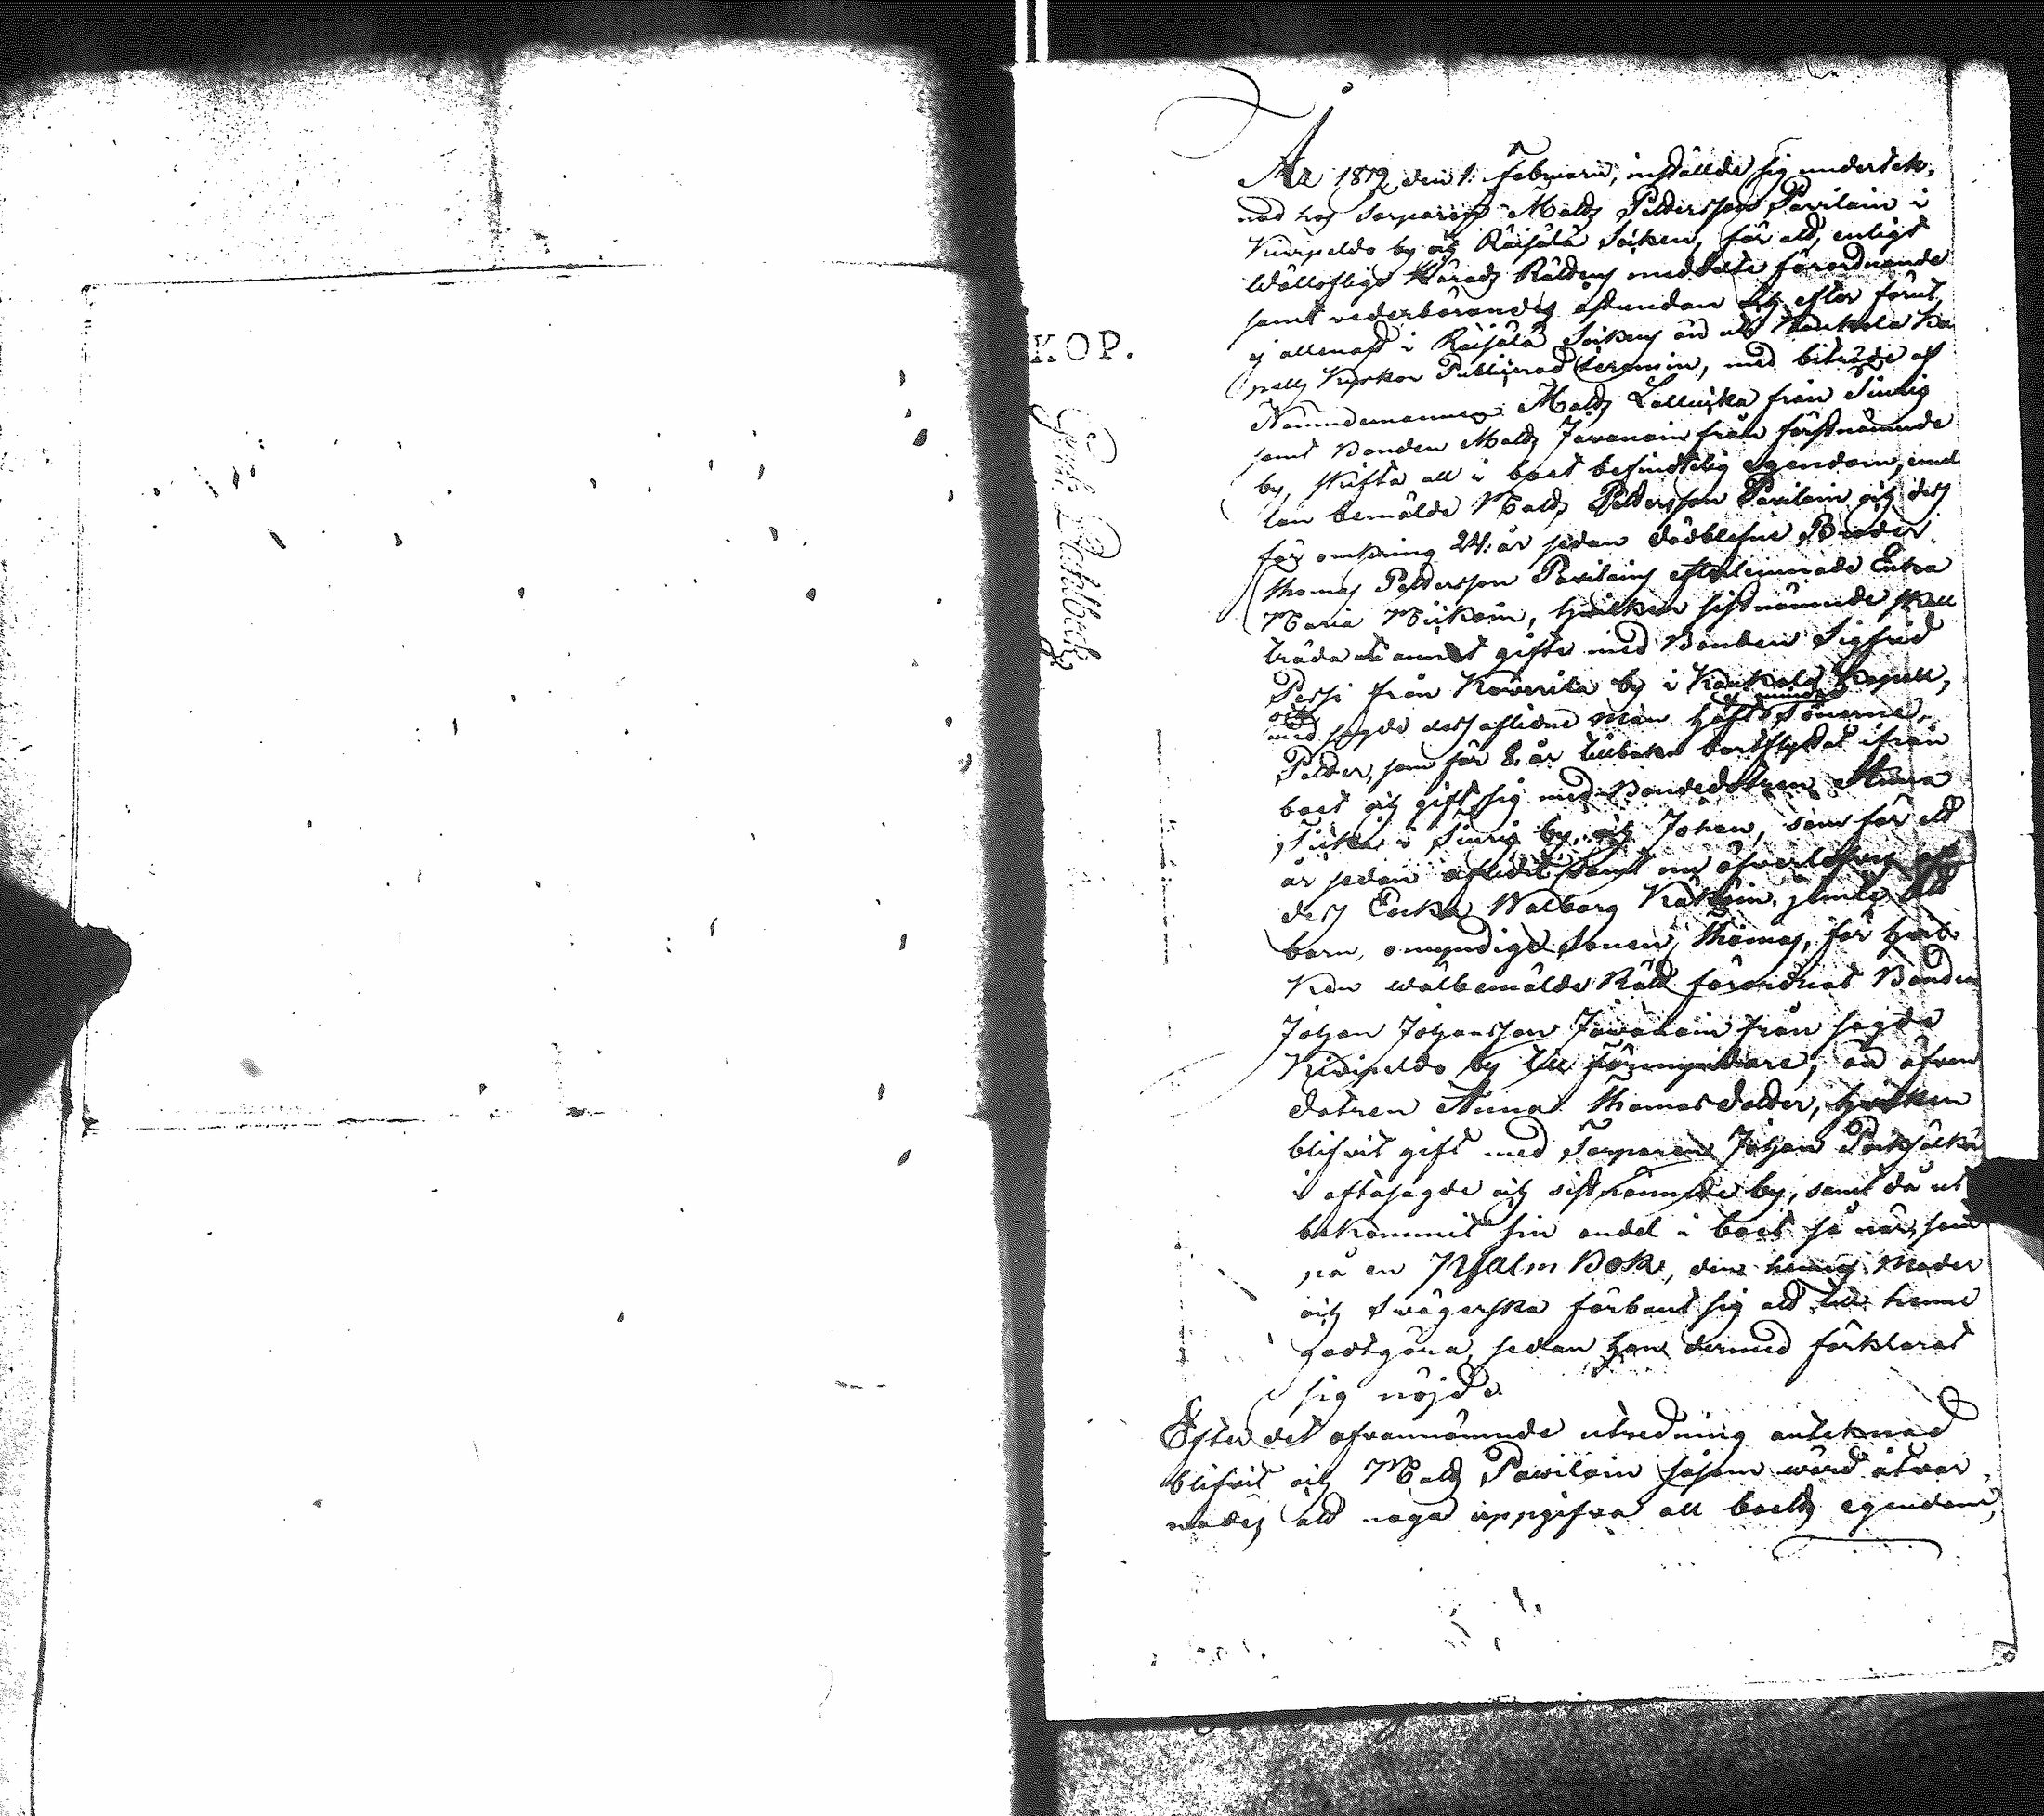 KOP.
Gersh. Dahlbeck
År 1812 den 1. Februarii, inställde sig undertek-
nad hos Torparen Matts Pettersson Pavilain i
Kivipeldo by och Räisälä Soken, för att, enligt
Wälloflige Härads Rättens meddelte förordnande
samt vederbörandes åstundan och efter förut,
ej allenast i Räisälä Sokens än ock Kaukola Ka
pells Kyrkor Publicerad termin, med biträde af
Nämndemannen Matts från
samt Bonden Matts Javanain från förstnämnde
by, skifta all i boet befindtelig egendom, emel
lan bemälde Matts Pettersson Pavilain och dess
för omkring 24. år sedan dödblefne Broder
Thomas Pettersson Pavilains efterlemnade Enka
Maria, hvilken sistnämnde skall
träda i annat gifte med Bonden Sigfrid
Pessi från Koverila by i Kaukola Kapell,
och med sagde dess aflidne man haft Sönerne
Petter, som för 8. år tillbaka bortflyttat ifrån
boet och gift sig med Bondedotren Anna
i by, och Johan, som för ett
år sedan aflidit samt nu öfverlefves af
dess Enka Walborg jemte ett
barn, omyndige Sonen Thomas, för hvil-
ken wälbemälde Rätt förordnat Bonden
Johan Johansson Javanain från sagde
Kivipeldo by till Förmyndare, än äfven
dotren Anna Thomasdotter, hvilken
blifvit gift med Torparen Johan
i oftasagde och sistnämnde by, samt då ut
bekommit sin andel i boet så när, som
på en Psalm Bok, den hennes Moder
och Svägerska förbant sig att till henne
godtgöra, sedan hon dermed förklarat
sig nöjd.
Efter det ofvannämnde utredning anteknad
blifvit och Matts Pavilain såsom wärd åtvar
nades att noga uppgifva all boets egendom,